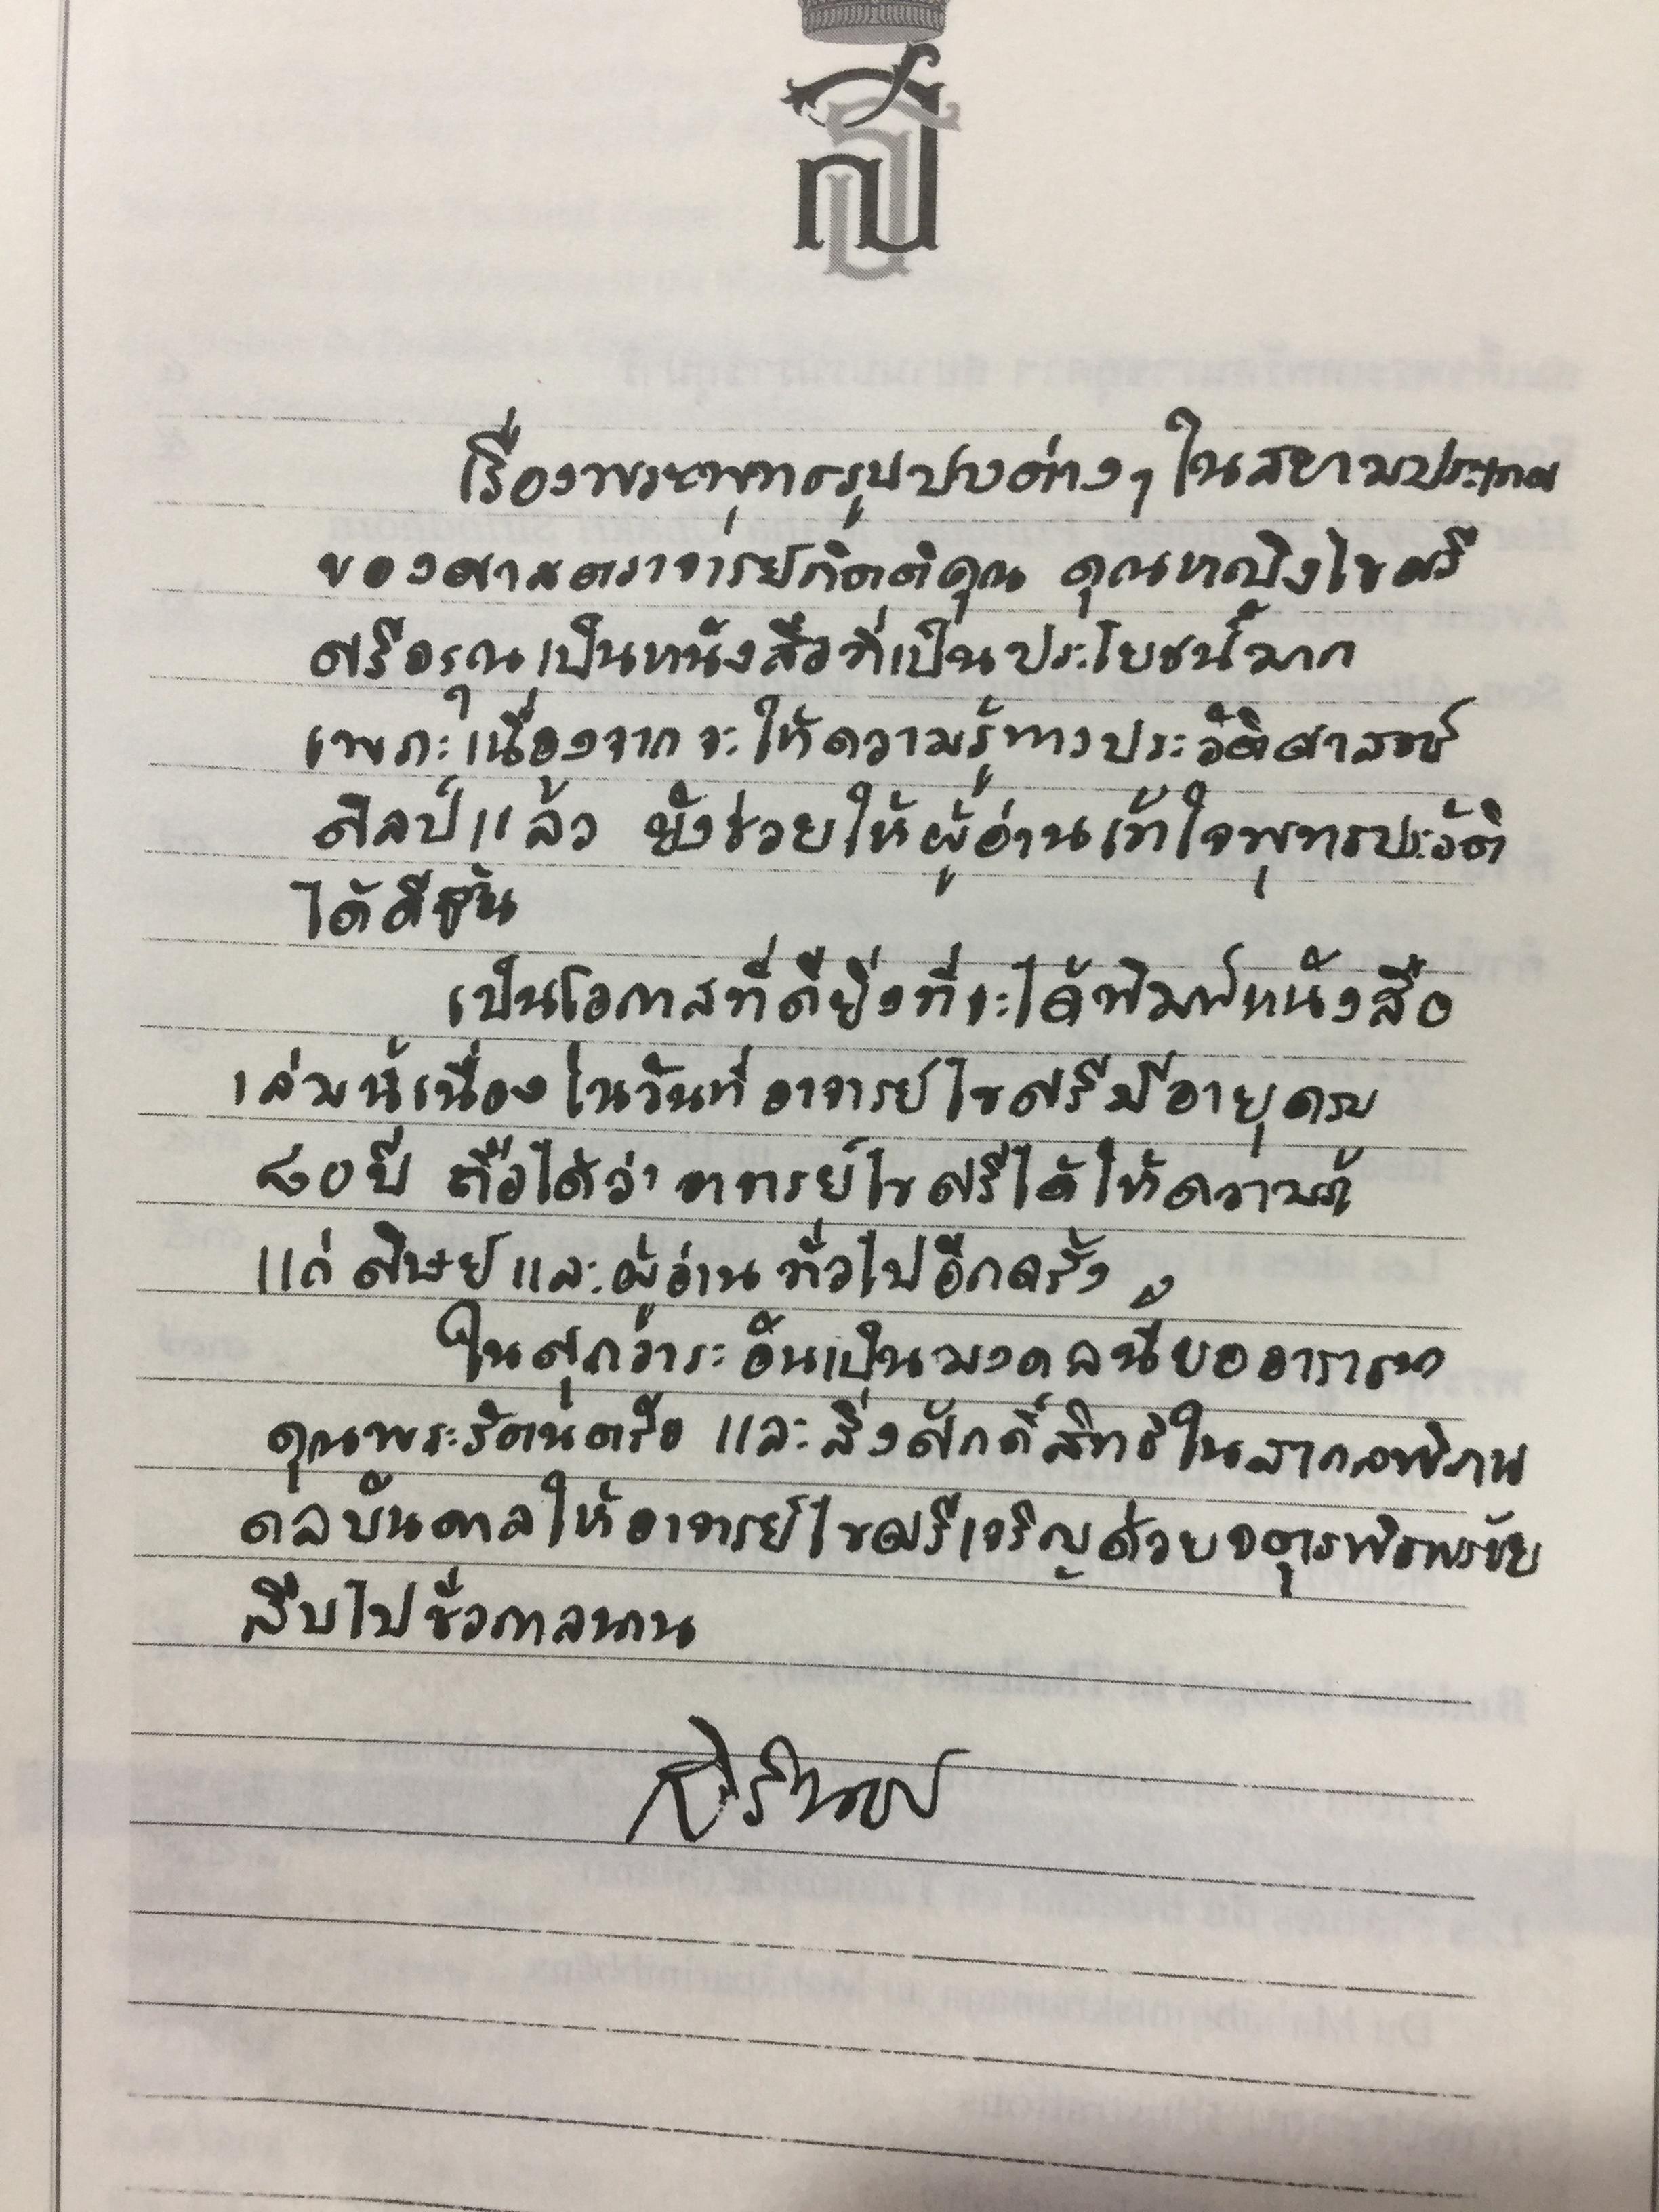 ส
เรื่องพระพุทธรูปปางต่างๆ ในสยามประเทศ
ของศาสตราจารย์กิตติคุณ คุณหญิงไขศรี
ศรีอรุณ เป็นหนังสือที่เป็นประโยชน์มาก
เพราะเนื่องจากจะให้ความรู้ทางประวัติศาสตร์
ศิลป์แล้ว ยังช่วยให้ผู้อ่านเข้าใจพุทธประวัติ
ได้ดีขึ้น
เป็นโอกาสที่ดียิ่งที่จะได้พิมพ์หนังสือ
เล่มนี้เนื่องในวันที่อาจารย์ไขศรีมีอายุครบ
๘๐ ปี ถือได้ว่าอาจารย์ไขศรีได้ให้ความรู้
แก่ศิษย์และผู้อ่านทั่วไปอีกครั้ง
ในศุภวาระอันเป็นมงคลนี้ขออาราธนา
คุณพระรัตนตรัย และสิ่งศักดิ์สิทธิ์ในสากลพิภพ
ดลบันดาลให้อาจารย์ไขศรีเจริญด้วยจตุรพิธพรชัย
สืบไปชั่วกาลนาน
สิรินธร